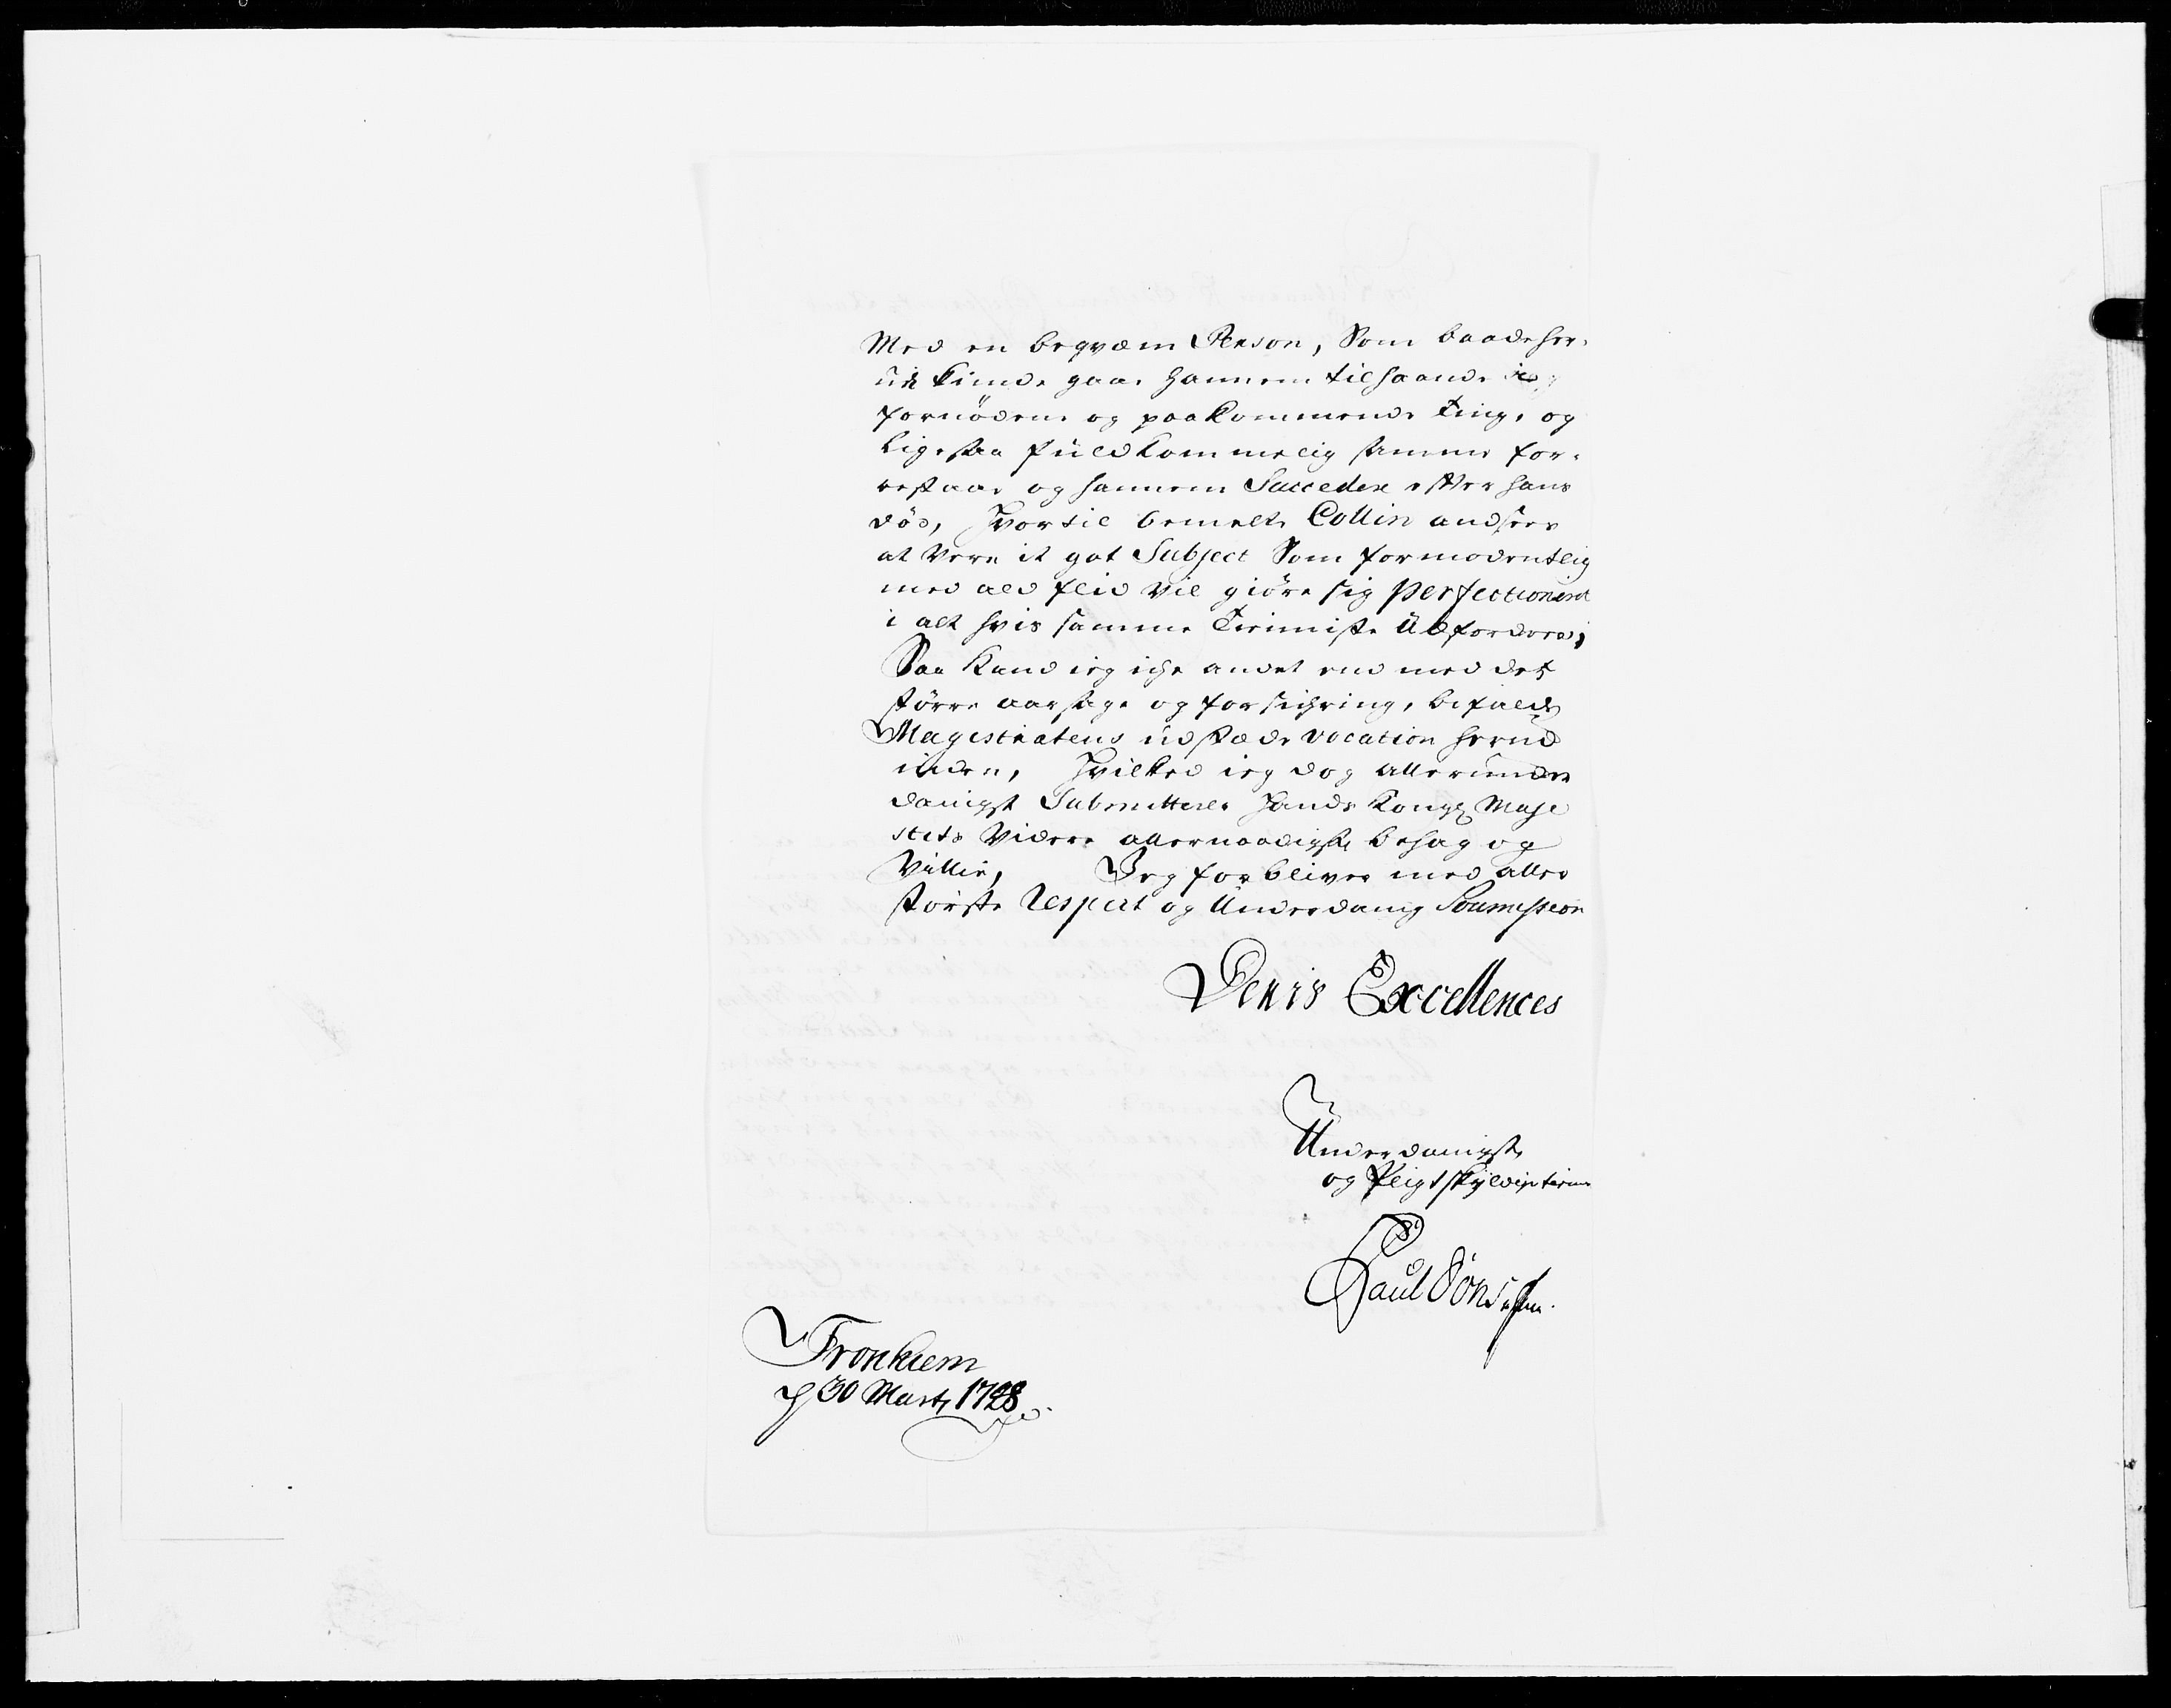 Med en beqvæm Person, Som baade her-
udi kunde gaae hannem tilhaande i
fornödene og paakommende ting, og
ligesaa fuldkommelig samme for-
restaae og hannem Succedere efter hans
död, Hvortil bemelte Collin ansees
at være it got Subject Som formodentlig
med ald fliid vil giöre sig perfectionered
i alt hvis samme Tieniste Udfordrer;
Saa kand ieg iche andet end med des
större aarsage og forsichring, befalde
Magistratens udstæde vocation herud
inden, Hvilked ieg dog allerunder
danigst Submitterer Hands Kongl Maje
stets Videre allernaadigste behag og
Villie, Jeg forbliver med aller
störste Respect og Underdanig Soumission
Deris Excellences
Underdanigste
og Pligtskyldigste tiener
Paul Jönssen.
Tronhiem
d 30 Marty 1728